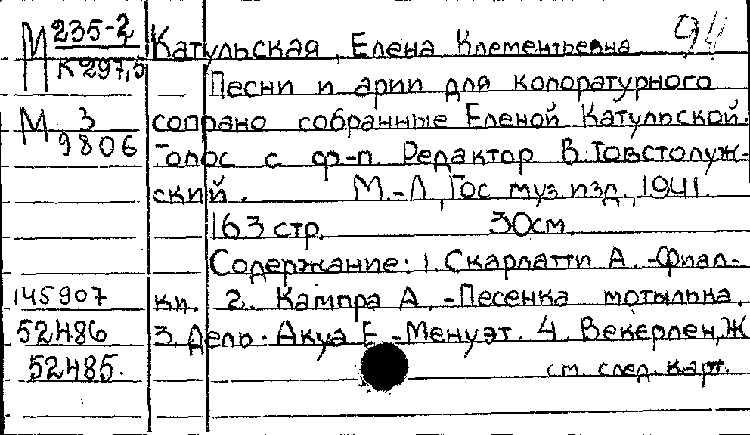 М 235-2 / К 297,5 Катульская, Елена Клементьевна 94
Песни и арии для колоратурного
М 3 / 9806 сопрано собранные Еленой Катульской.
Голос с ф-п. Редактор В. Товстолуж-
ский. М.-Л., Гос. муз. изд., 1941.
163 стр. 30см.
Содержание: 1. Скарлатти А. -Фиал-
145907 ки. 2. Кампра А. -Песенка мотылька.
52486 3. Дель-Акуа Е. -Менуэт. 4. Векерлен, Ж
52485. см. след. карт.